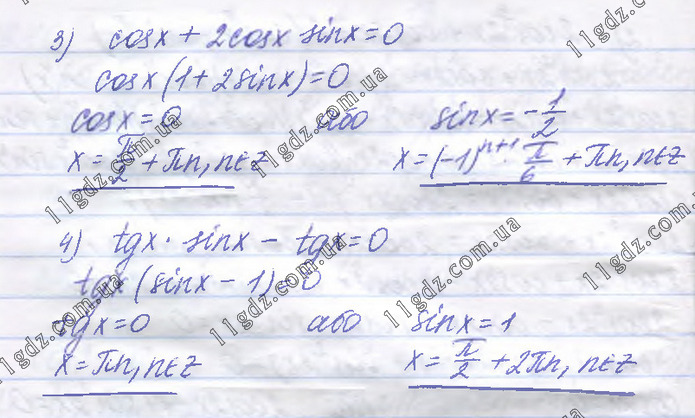 3) cosx + 2cosx sinx = 0
cosx(1 + 2sinx) = 0
cosx = 0 або sinx = -1/2
x = π/2 + πn, n∈Z x = (-1)^(n+1) · π/6 + πn, n∈Z
4) tgx · sinx - tgx = 0
tgx(sinx - 1) = 0
tgx = 0 або sinx = 1
x = πn, n∈Z x = π/2 + 2πn, n∈Z
11gdz.com.ua
11gdz.com.ua
11gdz.com.ua
11gdz.com.ua
11gdz.com.ua
11gdz.com.ua